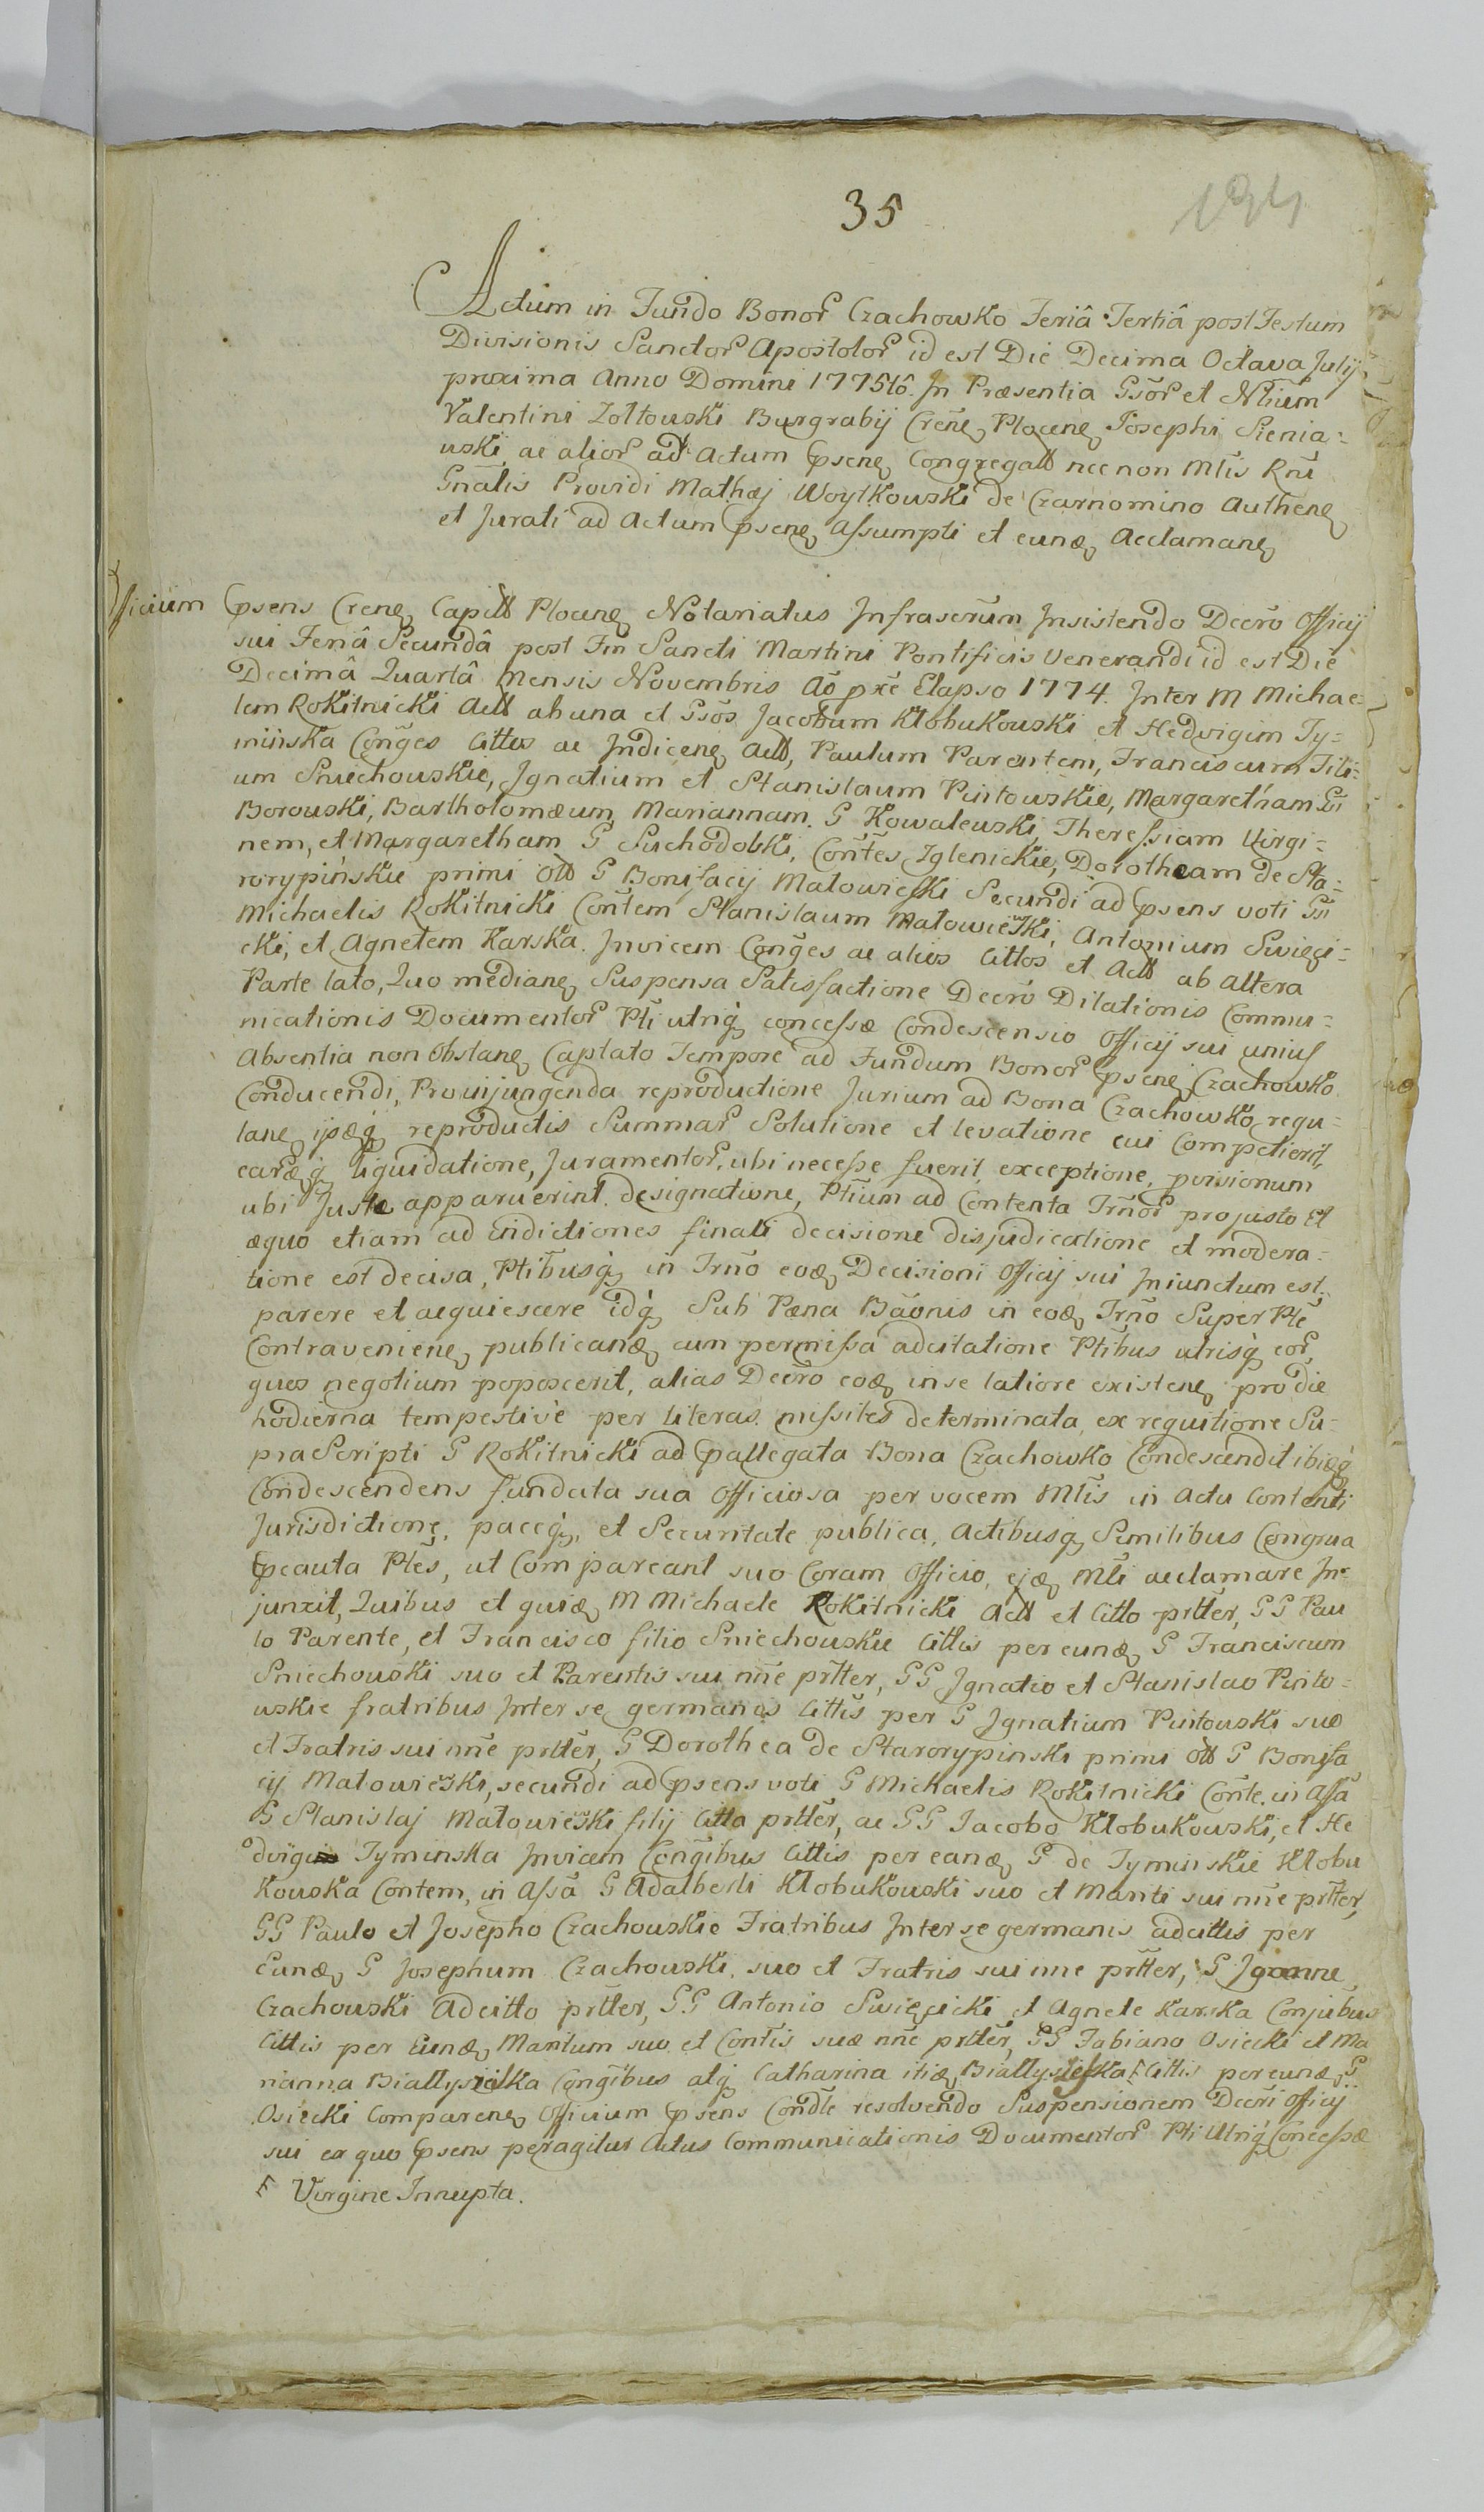 35
194
Actum in Fundo Bonor̄ Czachowko Feriâ Tertiâ post Festum
Divisionis Sanctor̄ Apostolor̄ id est Die Decima Octava Julij
proxima Anno Domini 1775tô. In Præsentia Gsõr̄ et Nbĩum
Valentini Zoltowski Burgrabij Crẽneȝ Ploceneȝ Josephi Sienia=
uski, ac alior̄ ad Actum pseneȝ Congregatt nec non Mtĩs Rñi
Gñalis Providi Mathæj Woytkowski de Czarnomino Autheneȝ
et Jurati ad Actum pseneȝ assumpti et eunđeȝ Acclamaneȝ
Officium psens Creneȝ Capitt Ploceneȝ Notariatus Infrascrũm Insistendo Decrõ Officij
sui Feriâ Secundâ post Fm̃ Sancti Martini Pontificis Venerandi id est Die
Decimâ Quartâ Mensis Novembris Aõ prẽ Elapso 1774. Inter M Michae=
lem Rokitnicki Actt ab una et Gsõs Jacobum Klobukowski et Hedvigim Ty=
minska Cong̃es Cittos ac Indiceneȝ Actt, Paulum Parentem, Franciscum Fili=
um Sniechowskie, Ignatium et Stanislaum Pintowskie, Margaretham Gsi
Borowski, Bartholomæum Mariannam. G Kowalewski, Theressiam Virgi=
nem, et Margaretham G Suchodolski, Cont̃es Iglenickie, Dorotheam de Sta=
rorypińskie primi ott G Bonifacij Matowieski Secundi ad psens voti Gsi
Michaelis Rokitnicki Cont̃em Stanislaum Matowieski, Antonium Swięci=
cki, et Agnetem Karska. Invicem Cong̃es ac alios Cittos et Actt ab altera
Parte lato, Quo medianeȝ Suspensa Satisfactione Decrõ Dilationis Commu=
nicationis Documentor̄ Ptĩ utriq̃ concessæ Condescensio Officij sui unius
Absentia non obstaneȝ Captato Tempore ad Fundum Bonor̄ pseneȝ Czachowko
Conducendi, Pro injungenda reproductione Jurium ad Bona Czachowko regu=
laneȝ ijsđeq̃ reproductis Summar̄ Solutione et levatione cui Competierit,
earđeq̃ liquidatione, Juramentor̄, ubi necesse fuerit, exceptione, poisionum
ubi Justæ apparuerint. designatione, Ptĩum ad Contenta Trñor̄ pro justo Et
æquo etiam ad indictiones finali decisione disjudicatione et modera=
tione est decisa, Ptĩbusq̃ in Trñõ eođeȝ Decisioni Officij sui Injunctum est
parere et acquiescere idq̃ Sub Pæna Bãonis in eođeȝ Trñõ Super Ptẽ
Contravenieneȝ publicanđeȝ cum permissa adcitatione Ptĩbus utrisq̃ eor̄,
quos negotium poposcerit, alias Decrõ eođeȝ in se latiore existeneȝ pro die
hodierna tempestive per literas missiles determinata, ex requitione Su=
pra Scripti G Rokitnicki ad pallegata Bona Czachowko Condescendit ibiđeq̃
Condescendens fundata sua Officiosa per vocem Mtĩs in actu Contenti
Jurisdictione, paceq̃, et Securitate publica, Actibusq̃ Similibus Congrua
pcauta Ptẽs, ut Compareant suo Coram Officio, ejđeȝ Mtĩ acclamare In=
junxit, Quibus et quiđeȝ M Michaele Rokitnicki Actt et Citto prt̃ter, GG Pau
lo Parente, et Francisco filio Sniechowskie Cittis per eunđeȝ G Franciscum
Sniechowski suo et Parentis sui nñe prt̃ter, GG Ignatio et Stanislao Pinto=
wskie fratribus Inter se germanis Cittis per G Ignatium Pintowski suo
et Fratris sui nñe prt̃ter, G Dorothea de Starorypinski primi ott G Bonifa
cij Matowieski, secundi ad psens voti G Michaelis Rokitnicki Cont̃e, in Assã
G Stanislaj Matowieski filij Citta prt̃ter, ac GG Jacobo Klobukowski, et He
dvigi Tyminska Invicem Cong̃ibus Cittis per eanđeȝ G de Tyminskie Klobu
kowska Contem, in Assã G Adalberti Klobukowski suo et Mariti sui nñe prt̃ter,
GG Paulo et Josepho Czachowskie Fratribus Inter se germanis adcittis per
Eunđeȝ G Josephum Czachowski, suo et Fratris sui nñe prt̃ter, G Joanne
Czachowski Adcitto prt̃ter, GG Antonio Swięcicki et Agnete Karska Conjubus
Cittis per Eunđeȝ Maritum suo et Cont̃is suæ nñe prt̃ter, GG Fabiano Osiecki et Ma
rianna Biallysielska Cong̃ibus atq̃ Catharina itiđeȝ Biallysielska F Cittis per eunđeȝ G
Osiecki Compareneȝ Officium psens Condt̃e resolvendo Suspensionem Decrĩ Officij
sui ex quo psens peragitur Actus Communicationis Documentor̄ Ptĩ Utriq̃ Concessæ
F Virgine Innupta.